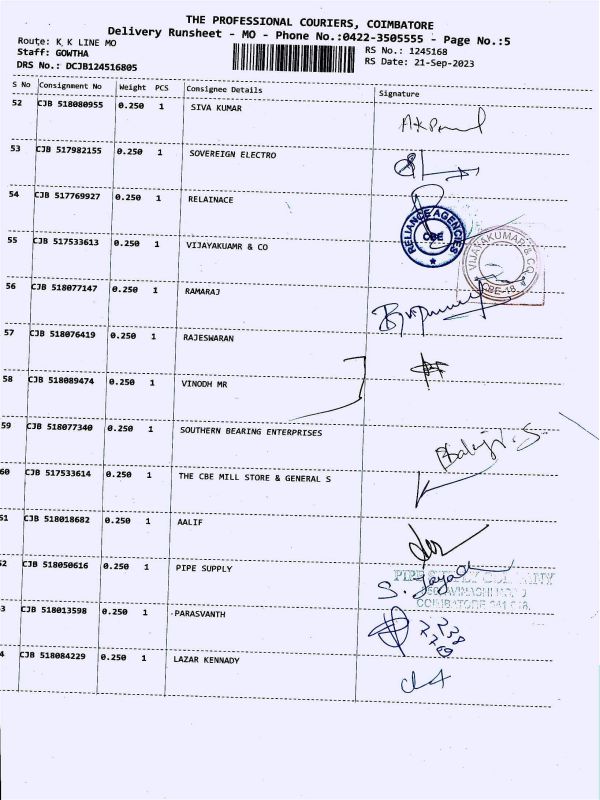 THE PROFESSIONAL COURIERS, COIMBATORE
Delivery Runsheet - MO - Phone No.:0422-3505555 - Page No.:5
Route: K K LINE MO
RS No.: 1245168
Staff: GOWTHA
RS Date: 21-Sep-2023
DRS No.: DCJB124516805
S No Consignment No Weight PCS Consignee Details Signature
52 CJB 518080955 0.250 1 SIVA KUMAR
53 CJB 517982155 0.250 1 SOVEREIGN ELECTRO
54 CJB 517769927 0.250 1 RELAINACE
RELIANCE AGENCIES CBE
55 CJB 517533613 0.250 1 VIJAYAKUAMR & CO
VIJAYAKUMAR & CO. CBE-18.
56 CJB 518077147 0.250 1 RAMARAJ
57 CJB 518076419 0.250 1 RAJESWARAN
58 CJB 518089474 0.250 1 VINODH MR
59 CJB 518077340 0.250 1 SOUTHERN BEARING ENTERPRISES
60 CJB 517533614 0.250 1 THE CBE MILL STORE & GENERAL S
51 CJB 518018682 0.250 1 AALIF
52 CJB 518050616 0.250 1 PIPE SUPPLY
PIPE SUPPLY COMPANY
COIMBATORE
3 CJB 518013598 0.250 1 PARASVANTH
4 CJB 518084229 0.250 1 LAZAR KENNADY